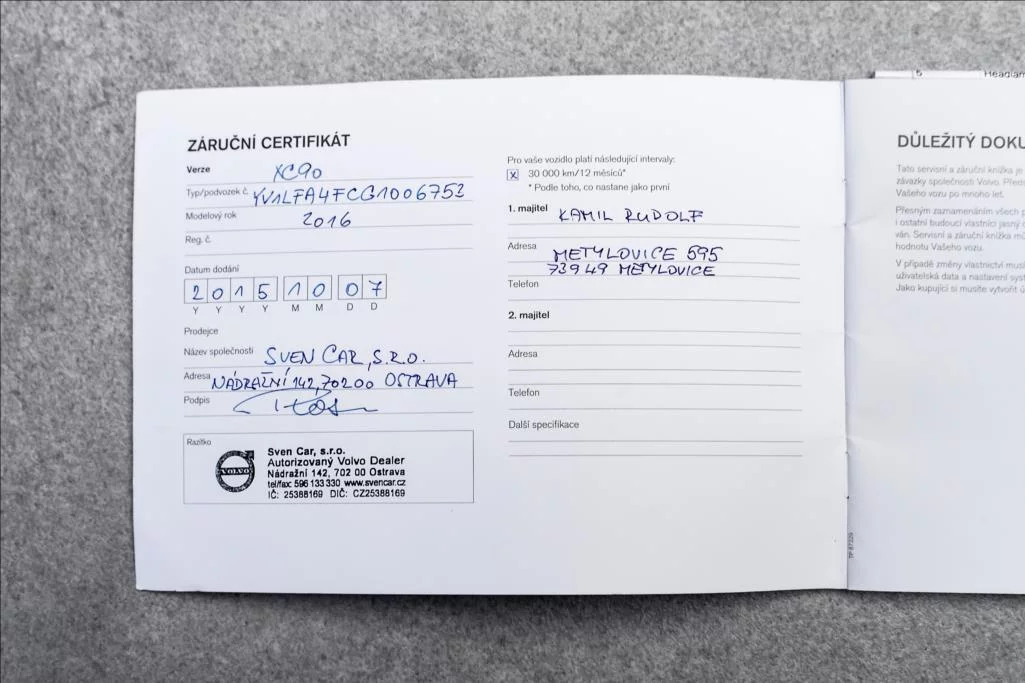 ZÁRUČNÍ CERTIFIKÁT
Verze XC90
Typ/podvozek č. YV1LFA4FCG1006752
Modelový rok 2016
Reg. č.
Datum dodání
2 0 1 5 1 0 0 7
Y Y Y Y M M D D
Prodejce
Název společnosti SVEN CAR, S.R.O.
Adresa NÁDRAŽNÍ 142, 702 00 OSTRAVA
Podpis
Razítko
VOLVO
Sven Car, s.r.o.
Autorizovaný Volvo Dealer
Nádražní 142, 702 00 Ostrava
tel/fax: 596 133 330 www.svencar.cz
IČ: 25388169 DIČ: CZ25388169
Pro vaše vozidlo platí následující intervaly:
x 30 000 km/12 měsíců*
* Podle toho, co nastane jako první
1. majitel KAMIL RUDOLF
Adresa METYLOVICE 595
739 49 METYLOVICE
Telefon
2. majitel
Adresa
Telefon
Další specifikace
TP 87229
5 Headlam
DŮLEŽITÝ DOKU
Tato servisní a záruční knížka je
závazky společnosti Volvo. Před
Vašeho vozu po mnoho let.
Přesným zaznamenáním všech
i ostatní budoucí vlastníci jasný
ván. Servisní a záruční knížka
hodnotu Vašeho vozu.
V případě změny vlastnictví musí
uživatelská data a nastavení sys
Jako kupující si musíte vytvořit ú